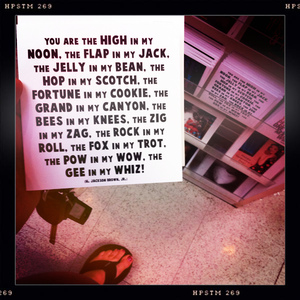 HPSTM 269
YOU ARE THE HIGH IN MY
NOON, THE FLAP IN MY JACK,
THE JELLY IN MY BEAN, THE
HOP IN MY SCOTCH, THE
FORTUNE IN MY COOKIE, THE
GRAND IN MY CANYON, THE
BEES IN MY KNEES, THE ZIG
IN MY ZAG, THE ROCK IN MY
ROLL, THE FOX IN MY TROT,
THE POW IN MY WOW, THE
GEE IN MY WHIZ!
(H. JACKSON BROWN, JR.)
HPSTM 269
HPSTM 269